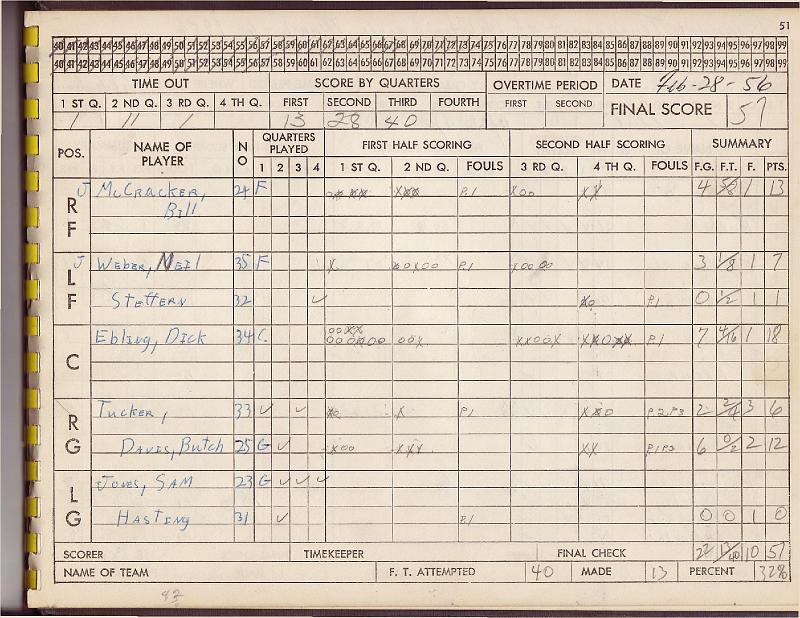 51
40 41 42 43 44 45 46 47 48 49 50 51 52 53 54 55 56 57 58 59 60 61 62 63 64 65 66 67 68 69 70 71 72 73 74 75 76 77 78 79 80 81 82 83 84 85 86 87 88 89 90 91 92 93 94 95 96 97 98 99
40 41 42 43 44 45 46 47 48 49 50 51 52 53 54 55 56 57 58 59 60 61 62 63 64 65 66 67 68 69 70 71 72 73 74 75 76 77 78 79 80 81 82 83 84 85 86 87 88 89 90 91 92 93 94 95 96 97 98 99
TIME OUT SCORE BY QUARTERS OVERTIME PERIOD DATE Feb-28-56
1 ST Q. 2 ND Q. 3 RD Q. 4 TH Q. FIRST SECOND THIRD FOURTH FIRST SECOND FINAL SCORE 57
1 11 1 13 28 40
POS. NAME OF PLAYER NO QUARTERS PLAYED FIRST HALF SCORING SECOND HALF SCORING SUMMARY
1 2 3 4 1 ST Q. 2 ND Q. FOULS 3 RD Q. 4 TH Q. FOULS F.G. F.T. F. PTS.
RF J McCracker, Bill 24 F P.1 Xoo XX 4 5/8 1 13
LF J Weber, Neil 35 F X P.1 3 1/8 1 7
Steffern 32 ✓ P.1 0 1/2 1 1
C Ebling, Dick 34 C. ooX P.1 7 4/16 1 18
RG Tucker, 33 ✓ ✓ X P.1 P.2 P.3 2 2/4 3 6
Davis, Butch 25 G ✓ XXX XX 6 0/2 2 12
LG Jones, Sam 23 G ✓ ✓ ✓
Hasting 31 ✓ P.1 0 0 1 0
SCORER TIMEKEEPER FINAL CHECK 22 13/40 10 57
NAME OF TEAM F. T. ATTEMPTED 40 MADE 13 PERCENT 32%